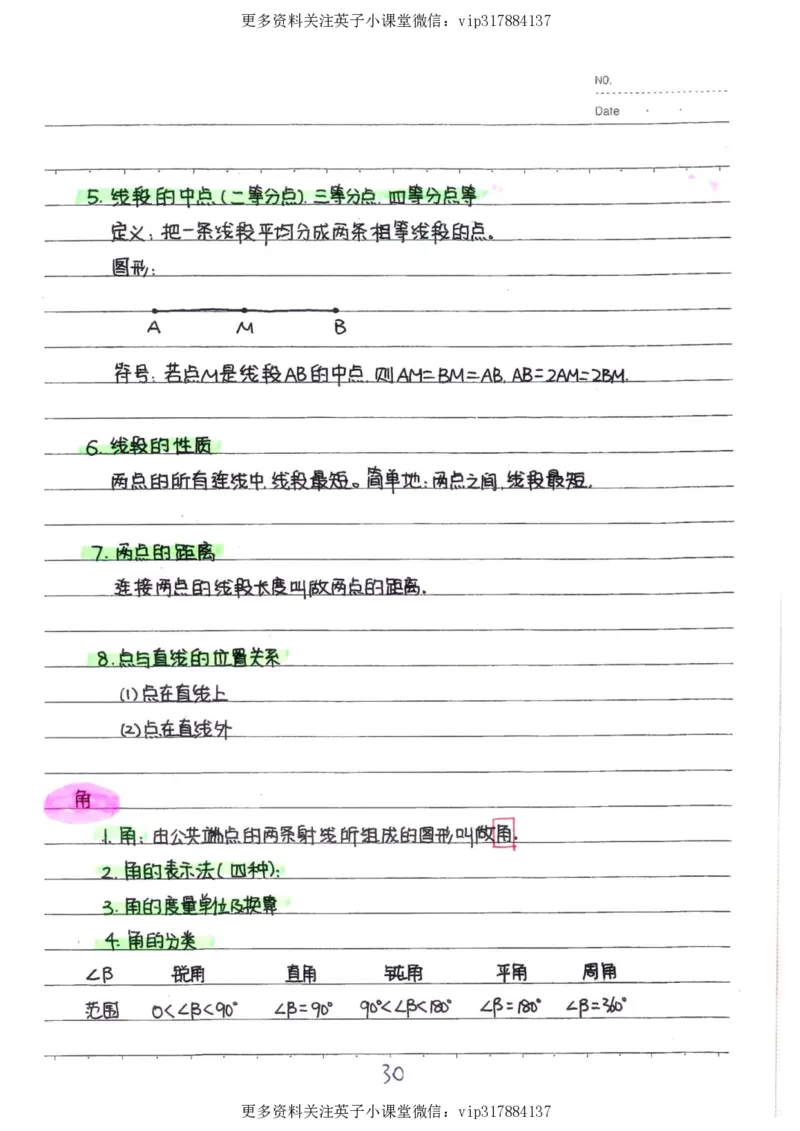 更多资料关注英子小课堂微信：vip317884137
NO.
Date
5. 线段的中点(二等分点). 三等分点. 四等分点等
定义：把一条线段平均分成两条相等线段的点。
图形：
A M B
符号：若点M是线段AB的中点，则AM=BM=AB, AB=2AM=2BM.
6. 线段的性质
两点的所有连线中，线段最短。简单地：两点之间，线段最短.
7. 两点的距离
连接两点的线段长度叫做两点的距离.
8. 点与直线的位置关系
(1)点在直线上
(2)点在直线外
角
1. 角：由公共端点的两条射线所组成的图形叫做角.
2. 角的表示法(四种)：
3. 角的度量单位及换算
4. 角的分类
∠β 锐角 直角 钝角 平角 周角
范围 0<∠β<90° ∠β=90° 90°<∠β<180° ∠β=180° ∠β=360°
30
更多资料关注英子小课堂微信：vip317884137